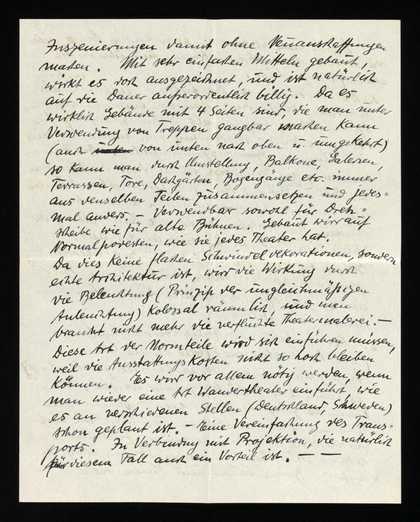 Inszenierungen damit ohne Neuanschaffungen
machen. Mit sehr einfachen Mitteln gebaut,
wirkt es doch ausgezeichnet, und ist natürlich
auf die Dauer außerordentlich billig. Da es
wirklich Gebäude mit 4 Seiten sind, die man unter
Verwendung von Treppen gangbar machen kann
(auch von unten nach oben u. umgekehrt)
so kann man durch Umstellung, Balkone, Galerien,
Terrassen, Tore, Dachgärten, Bogengänge etc. immer
aus denselben Teilen zusammensetzen und jedes-
mal anders. – Verwendbar sowohl für Dreh-
scheibe wie für alte Bühnen. Gebaut wird auf
Normalpodesten, wie sie jedes Theater hat.
Da dies keine flachen Schwindeldekorationen, sondern
echte Architektur ist, wird die Wirkung durch
die Beleuchtung (Prinzip der ungleichmäßigen
Anleuchtung) kolossal räumlich, und man
braucht nicht mehr die verfluchte Theatermalerei. –
Diese Art der Normteile wird sich einführen müssen,
weil die Ausstattungskosten nicht so hoch bleiben
können. Es wird vor allem nötig werden, wenn
man wieder eine Art Wandertheater einführt, wie
es an verschiedenen Stellen (Deutschland, Schweden)
schon geplant ist. – Eine Vereinfachung des Trans-
ports. In Verbindung mit Projektion, die natürlich
für diesem Fall auch ein Vorteil ist. – –